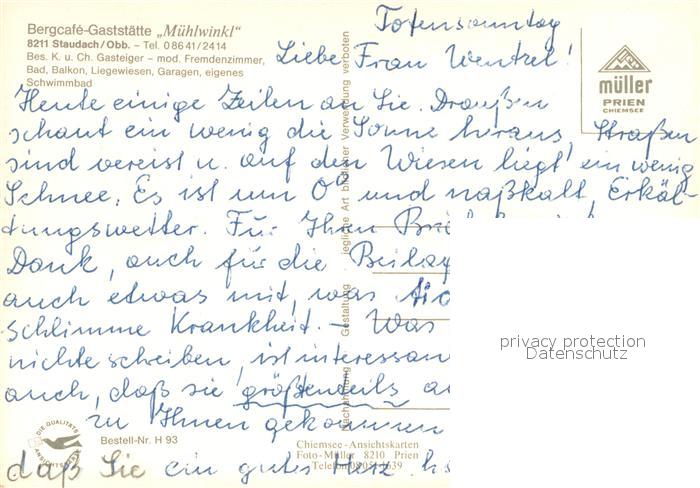 Bergcafé-Gaststätte „Mühlwinkl"
8211 Staudach/Obb. – Tel. 0 86 41/2414
Bes. K. u. Ch. Gasteiger – mod. Fremdenzimmer,
Bad, Balkon, Liegewiesen, Garagen, eigenes
Schwimmbad
müller
PRIEN
CHIEMSEE
Totensonntag
Liebe Frau Wentzel!
Heute einige Zeilen an Sie. Draußen
schaut ein wenig die Sonne heraus, Straßen
sind vereist u. auf den Wiesen liegt ein wenig
Schnee. Es ist um 0° und naßkalt, Erkäl-
tungswetter. Für Ihren
Dank, auch für die
auch etwas mit, was
schlimme Krankheit. – Was
nichte schreiben, ist
auch, daß sie größtenteils
zu Ihnen gekommen
daß Sie ein gutes Herz
jegliche Art bildlicher Verwendung verboten
Nachahmung Gestaltung
privacy protection
Datenschutz
DIE QUALITÄTS
ANSICHTSKARTE
Bestell-Nr. H 93
Chiemsee-Ansichtskarten
Foto-Müller 8210 Prien
Telefon 08051/